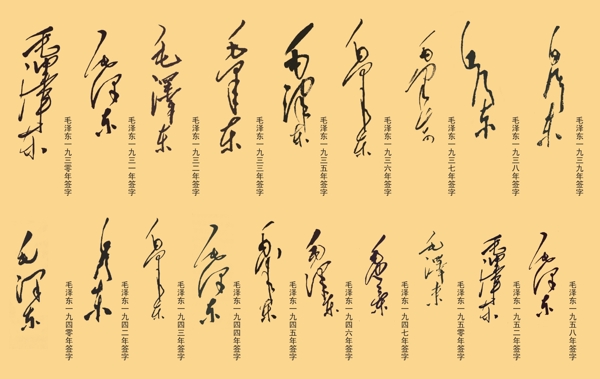 毛泽东
毛泽东一九三零年签字
毛泽东
毛泽东一九三一年签字
毛澤东
毛泽东一九三二年签字
毛泽东
毛泽东一九三三年签字
毛泽东
毛泽东一九三五年签字
毛泽东
毛泽东一九三六年签字
毛泽东
毛泽东一九三七年签字
毛泽东
毛泽东一九三八年签字
毛泽东
毛泽东一九三九年签字
毛泽东
毛泽东一九四零年签字
毛泽东
毛泽东一九四二年签字
毛泽东
毛泽东一九四三年签字
毛泽东
毛泽东一九四四年签字
毛泽东
毛泽东一九四五年签字
毛泽东
毛泽东一九四六年签字
毛泽东
毛泽东一九四七年签字
毛泽东
毛泽东一九五零年签字
毛泽东
毛泽东一九五二年签字
毛泽东
毛泽东一九五八年签字